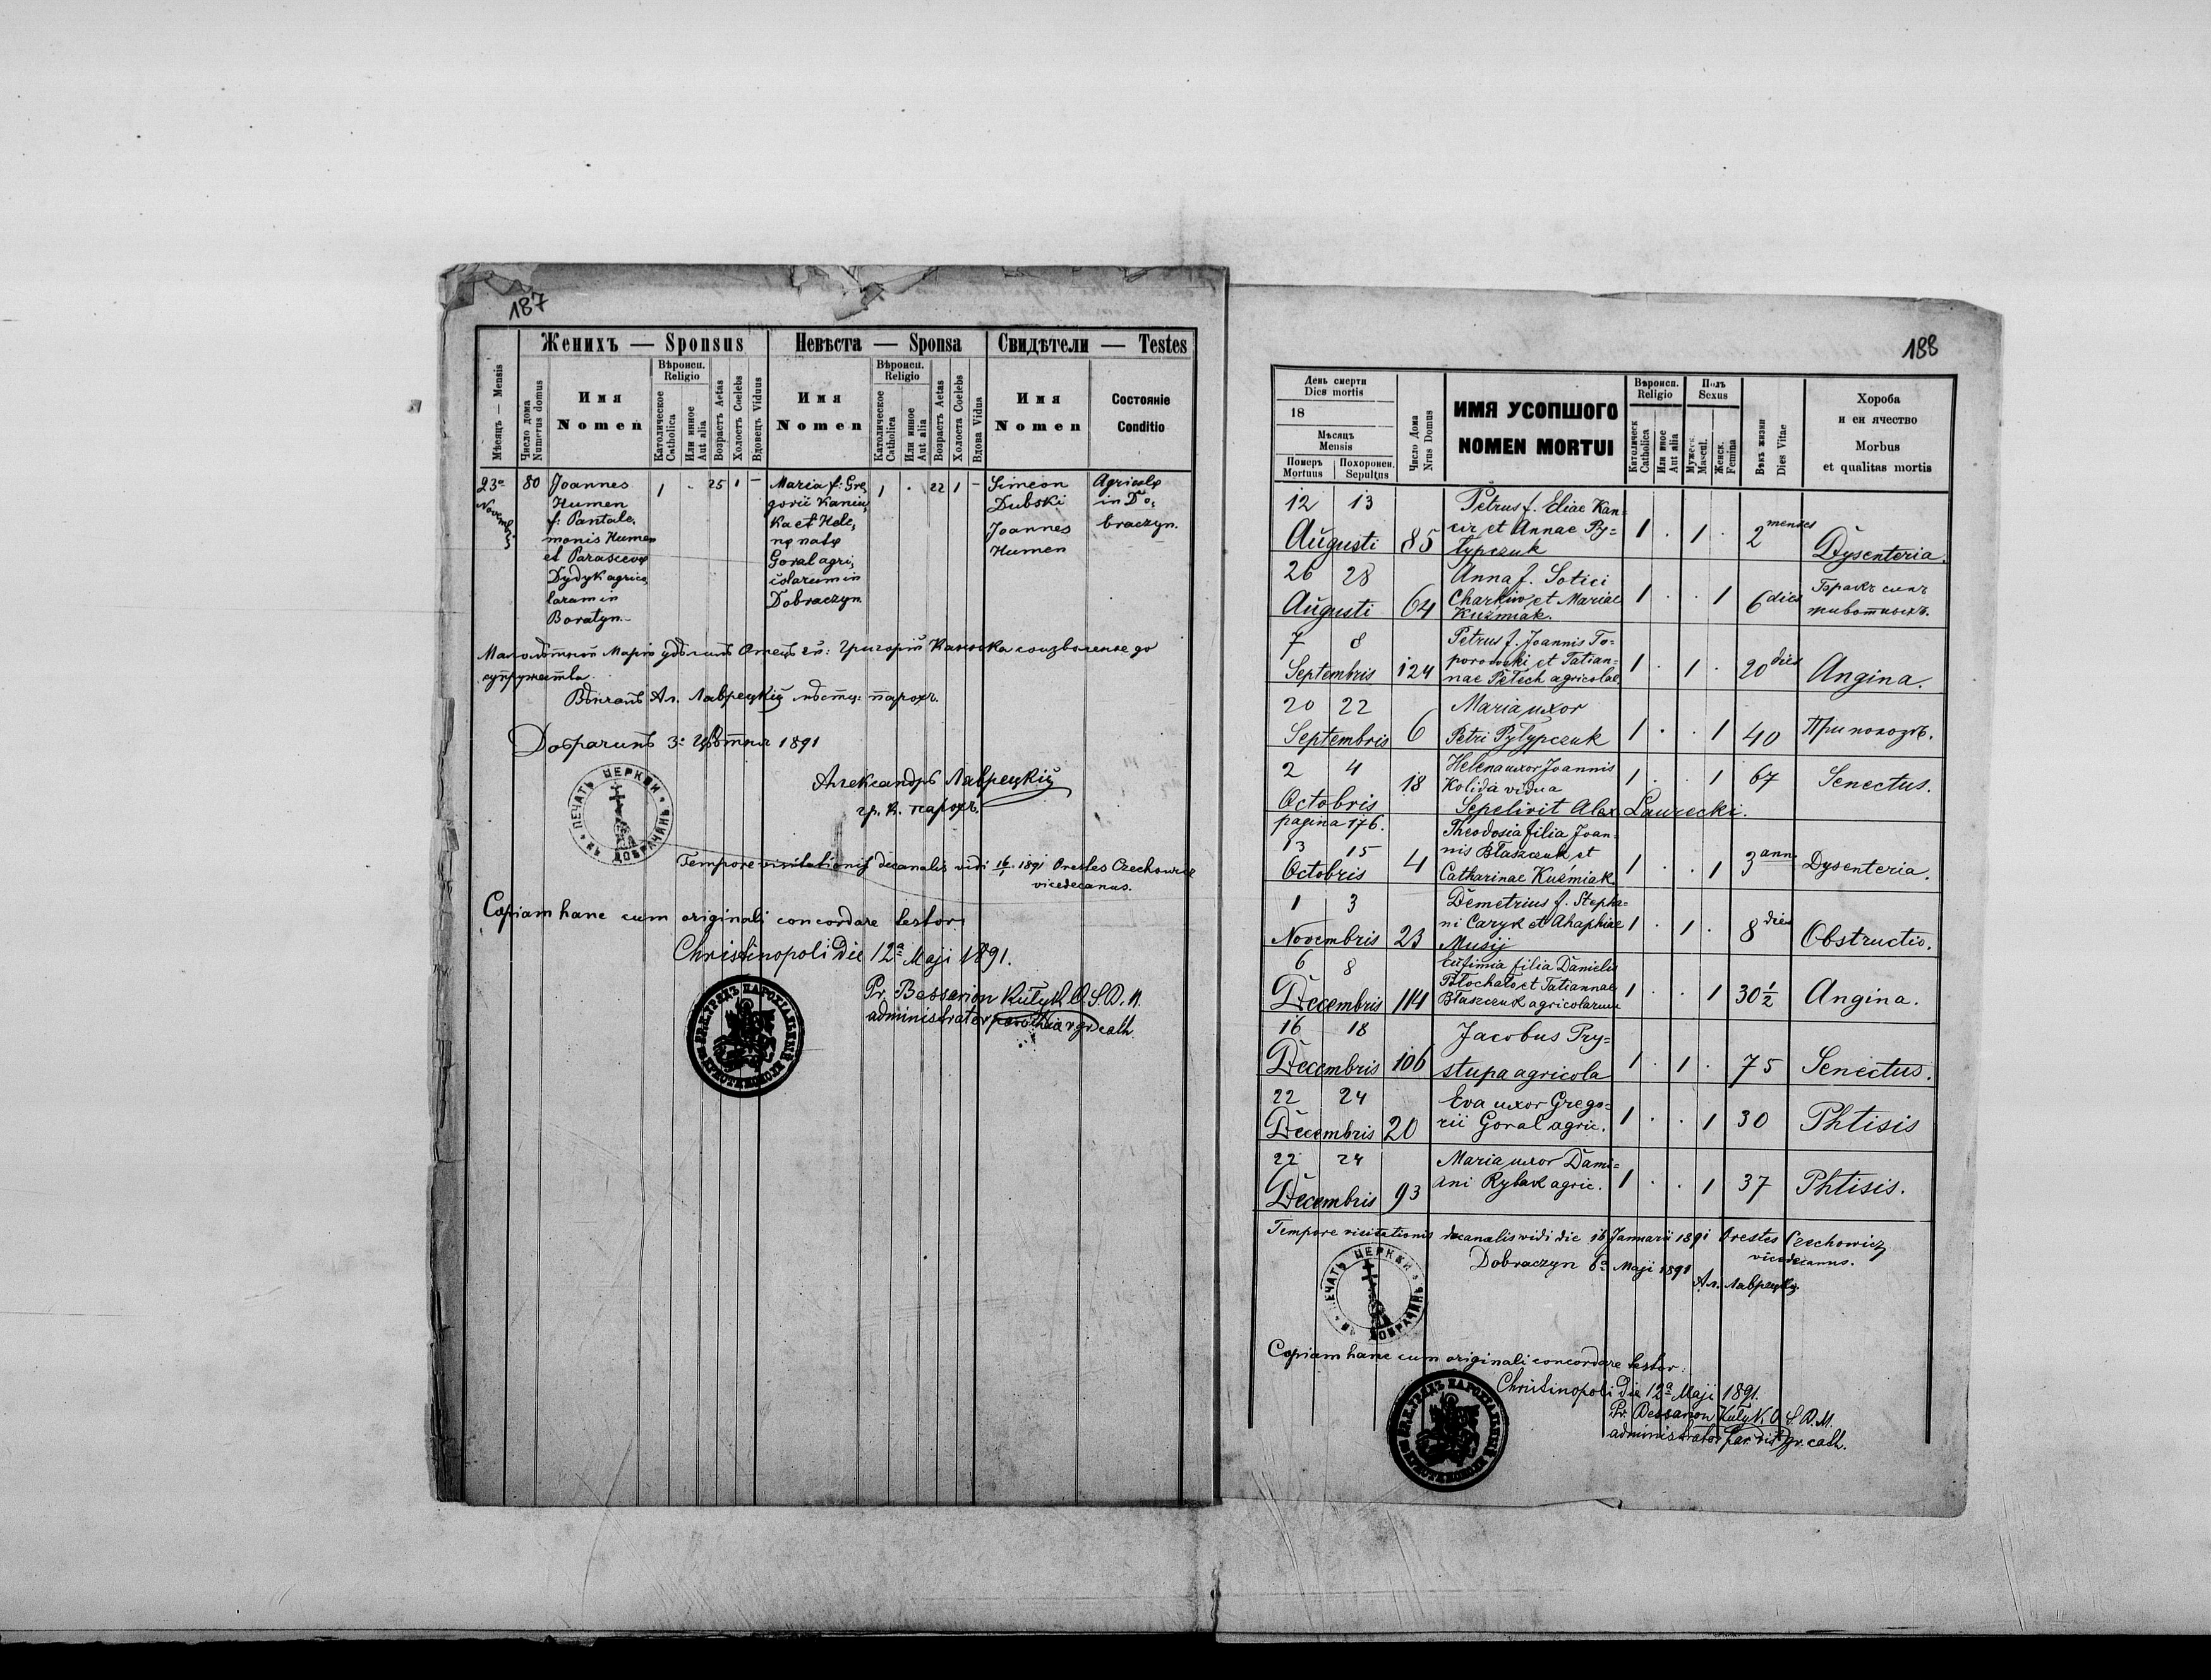 187
Женихъ — Sponsus
Невѣста — Sponsa
Свидѣтели — Testes
Мѣсяцъ — Mensis
Число дома
Numerus domus
Имя
Nomen
Вѣроисп.
Religio
Католическое
Catholica
Или иное
Aut alia
Возрастъ Aetas
Холостъ Coelebs
Вдовецъ Viduus
Имя
Nomen
Вѣроисп.
Religio
Католическое
Catholica
Или иное
Aut alia
Возрастъ Aetas
Холоста Coelebs
Вдова Vidua
Имя
Nomen
Состояніе
Conditio
23a
Novembris
80
Joannes
Humen
f: Pantale,
monis Humen
et Parascevæ
Dydyk agrico,
larum in
Boratyn.-
1 . 25 1 -
Maria f: Gre,
gorii Kaniu,
ka et Hele,
næ natæ
Goral agri,
colarum in
Dobraczyn
1 . 22 1 -
Simeon
Dubski
Joannes
Humen
Agricolæ
in Do,
braczyn.
Малолѣтной Маріи удѣлилъ Отецъ ей: Григорій Канюка соизволенье до
супружества.
Вѣнчалъ Ал. Лаврецкій мѣстц: парохъ.
Добрачинъ 3: Цвѣтня 1891
Александръ Лаврецкій
гр. к. парохъ.
ПЕЧАТЬ ЦЕРКВИ ДОБРАЧИНЪ
Tempore visitationis decanalis vidi 16/1 1891 Orestes Czechowicz
vicedecanus.
Copiam hanc cum originali concordare testor
Christinopoli Die 12a Maji 1891.
Pr. Bessarion Kułyk O.S.B.M.
administrator parochiae gr cath
188
День смерти
Dies mortis
18
Мѣсяцъ
Mensis
Померъ
Mortuus
Похоронен.
Sepultus
Число Дома
Nrus Domus
ИМЯ УСОПШОГО
NOMEN MORTUI
Вѣроисп.
Religio
Католическ
Catholica
Или иное
Aut alia
Полъ
Sexus
Мужеск.
Mascul.
Женск.
Femina
Вѣкъ жизни
Dies Vitae
Хороба
и еи ячество
Morbus
et qualitas mortis
12 13
Augusti 85
Petrus f. Eliae Kan=
cir et Annae Py=
łypczuk
1 . 1 . 2 menses Dysenteria.
26 28
Augusti 64
Anna f. Sotici
Charkiw et Mariae
Kuźmiak.
1 . . 1 6 dies Бракъ силъ
животныхъ.
7 8
Septembris 124
Petrus f. Joannis To=
porowski et Tatian=
nae Petech agricolae
1 . 1 . 20 dies Angina.
20 22
Septembris 6
Maria uxor
Petri Pyłypczuk
1 . . 1 40 При пологѣ.
2 4
Octobris 18
Helena uxor Joannis
Kolida vidua
1 . . 1 67 Senectus.
Sepelivit Alex Laurecki.
pagina 176.
13 15
Octobris 4
Theodosia filia Joan=
nis Błaszczuk et
Catharinae Kuźmiak
1 . . 1 3 ann. Dysenteria.
1 3
Novembris 23
Demetrius f. Stepha=
ni Caryk et Ahaphiae
Musij
1 . 1 . 8 dies Obstructio.
6 8
Decembris 114
Eufimia filia Danielis
Błochato et Tatiannae
Błaszczuk agricolarum
1 . . 1 30 1/2 Angina.
16 18
Decembris 106
Jacobus Pry=
stupa agricola
1 . 1 . 75 Senectus.
22 24
Decembris 20
Eva uxor Grego=
rii Goral agric.
1 . . 1 30 Phtisis
22 24
Decembris 93
Maria uxor Dami=
ani Rybak agric.
1 . . 1 37 Phtisis.
Tempore visitationis decanalis vidi die 16 Januarii 1891 Orestes Czechowicz
vicedecanus.
Dobraczyn 6a Maji 1891
Ал. Лаврецкій.
ПЕЧАТЬ ЦЕРКВИ ДОБРАЧИНЪ
Copiam hanc cum originali concordare testor:
Christinopoli Die 12a Maji 1891.
Pr. Bessarion Kułyk O.S.B.M.
administrator gr. cath.